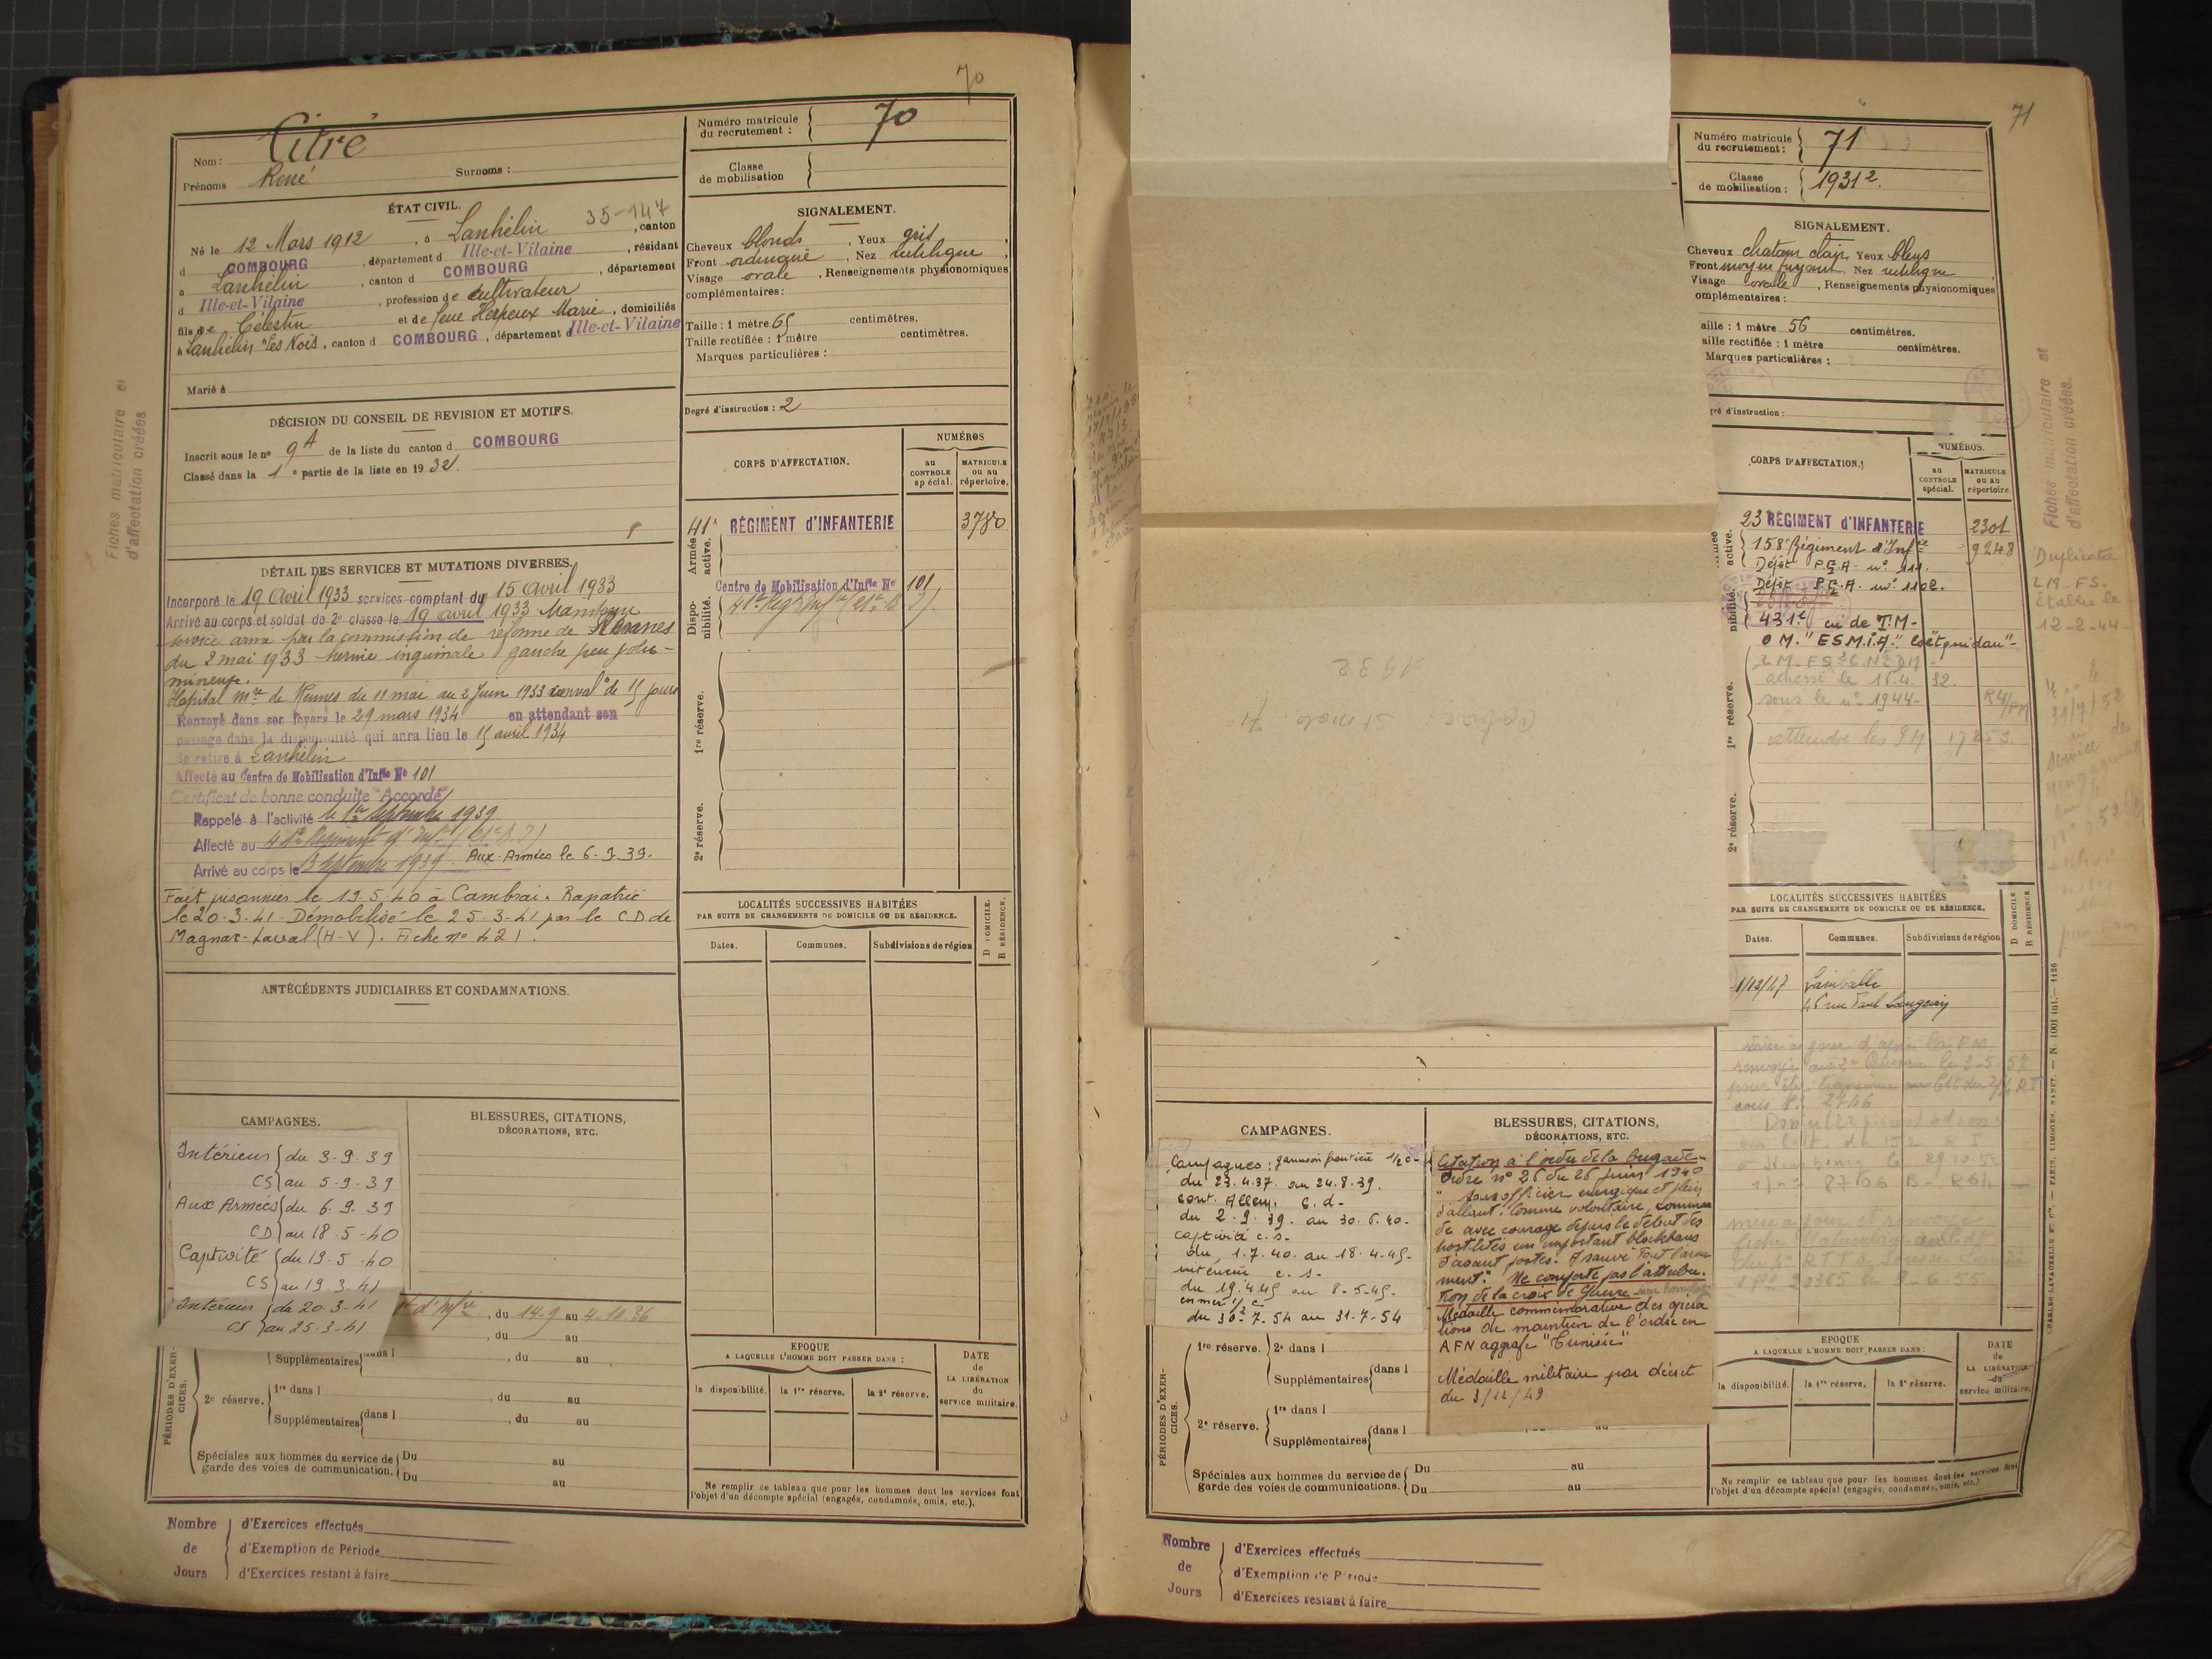 70
Nom : Titré
Prénoms René Surnoms :
Numéro matricule du recrutement : 70
Classe de mobilisation
ÉTAT CIVIL.
35-147
Né le 12 Mars 1912, à Lanhélin, canton
d COMBOURG, département d Ille-et-Vilaine, résidant
à Lanhélin, canton d COMBOURG, département
d Ille-et-Vilaine, profession de cultivateur
fils de Célestin et de feue Herpeux Marie, domiciliés
à Lanhélin "Les Nois, canton d COMBOURG, département d Ille-et-Vilaine
Marié à
SIGNALEMENT.
Cheveux blonds, Yeux gris,
Front ordinaire, Nez rectiligne,
Visage ovale, Renseignements physionomiques
complémentaires :
Taille : 1 mètre 65 centimètres.
Taille rectifiée : 1 mètre centimètres.
Marques particulières :
Degré d'instruction : 2
Fiches matriculaire et
d'affectation créées
DÉCISION DU CONSEIL DE REVISION ET MOTIFS.
Inscrit sous le no 9A de la liste du canton d COMBOURG
Classé dans la 1e partie de la liste en 1932.
DÉTAIL DES SERVICES ET MUTATIONS DIVERSES.
Incorporé le 19 Avril 1933 services comptant du 15 Avril 1933
Arrivé au corps et soldat de 2e classe le 19 avril 1933 Maintenu
service armé par la commission de réforme de Rennes
du 2 mai 1933 hernie inguinale gauche peu volu-
mineuse.
Hopital mre de Rennes du 11 mai au 2 Juin 1933 convalce de 15 jours
Renvoyé dans ses foyers le 29 mars 1934 en attendant son
passage dans la disponibilité qui aura lieu le 15 avril 1934
Se retire à Lanhélin
Affecté au Centre de Mobilisation d'Infie No 101
Certificat de bonne conduite "Accordé"
Rappelé à l'activité le 1er Septembre 1939
Affecté au 41e Régiment d'Infie
Arrivé au corps le 3 Septembre 1939. Aux Armées le 6.9.39.
Fait prisonnier le 19.5.40 à Cambrai. Rapatrié
le 20.3.41. Démobilisé le 25.3.41 par le CD de
Magnac-Laval (H-V). Fiche no 421.
ANTÉCÉDENTS JUDICIAIRES ET CONDAMNATIONS.
CORPS D'AFFECTATION.
NUMÉROS
au CONTROLE spécial.
MATRICULE ou au répertoire.
Armée active.
41e RÉGIMENT d'INFANTERIE 3780
Disponibilité.
Centre de Mobilisation d'Infie No 101
1re réserve.
2e réserve.
LOCALITÉS SUCCESSIVES HABITÉES
PAR SUITE DE CHANGEMENTS DE DOMICILE OU DE RÉSIDENCE.
D DOMICILE.
R RÉSIDENCE.
Dates. Communes. Subdivisions de région
CAMPAGNES.
Intérieur du 3-9-39
CS au 5-9-39
Aux Armées du 6-9-39
CD au 18-5-40
Captivité du 19-5-40
CS au 19-3-41
Intérieur du 20-3-41
CS au 25-3-41
BLESSURES, CITATIONS,
DÉCORATIONS, ETC.
d'Infie, du 14-9 au 4-10-36
, du au
PÉRIODES D'EXERCICES.
Supplémentaires dans l , du au
2e réserve. 1re dans l , du au
Supplémentaires dans l , du au
Spéciales aux hommes du service de
garde des voies de communication.
Du au
Du au
EPOQUE
A LAQUELLE L'HOMME DOIT PASSER DANS :
la disponibilité. la 1re réserve. la 2e réserve.
DATE de LA LIBÉRATION du service militaire.
Ne remplir ce tableau que pour les hommes dont les services font
l'objet d'un décompte spécial (engagés, condamnés, omis, etc.).
Nombre de Jours
d'Exercices effectués
d'Exemption de Période
d'Exercices restant à faire
71
Numéro matricule du recrutement : 71
Classe de mobilisation : 1931 2.
SIGNALEMENT.
Cheveux chatain clair, Yeux bleus
Front moyen fuyant, Nez rectiligne,
Visage ovale, Renseignements physionomiques
omplémentaires :
aille : 1 mètre 56 centimètres.
aille rectifiée : 1 mètre centimètres.
Marques particulières :
gré d'instruction :
Fiches matriculaire et
d'affectation créées.
CORPS D'AFFECTATION.
NUMÉROS.
au CONTROLE spécial.
MATRICULE ou au répertoire
23 RÉGIMENT d'INFANTERIE 2301
158e Régiment d'Infie 9248
Dépôt P.G.A. no 111.
Dépôt P.G.A. no 1102.
431e cie de T.M-
O M. "E S.M.i.A." Coëtquidan"-
adressé le 15.4.52.
sous le no 1944-
1re réserve.
2e réserve.
Duplicata
établi le
12-2-44-
1932
St Malo. 71
LOCALITÉS SUCCESSIVES HABITÉES
PAR SUITE DE CHANGEMENTS DE DOMICILE OU DE RÉSIDENCE.
D DOMICILE
R RÉSIDENCE
Dates. Communes. Subdivisions de région
1/12/47 Lamballe
46 rue Paul Langevin
CHARLES-LAVAUZELLE ET Cie. — PARIS, LIMOGES, NANCY. — N. 1001 int. — 1126
CAMPAGNES.
Campagnes : garnison frontière 1/2 c-
du 23.4.37. au 24.8.39.
cont. Allem. C. d-
du 2.9.39. au 30.6.40-
captivité c. s-
du 1.7.40. au 18.4.45-
intérieur c. s-
du 19.4.45 au 8-5-45-
en mer 1/2 c
du 30-7-54 au 31-7-54
BLESSURES, CITATIONS,
DÉCORATIONS, ETC.
Citation à l'ordre de la brigade-
Ordre no 26 du 26 juin 1940
" Sous officier énergique et plein
d'allant. Comme volontaire, comman
de avec courage depuis le début des
hostilités un important blockhaus
d'avant postes. A sauvé tout l'arme
ment." Ne comporte pas l'attribu-
tion de la croix de Guerre
Médaille commémorative des opéra
tions de maintien de l'ordre en
AFN aggrafe "Tunisie"
Médaille militaire par décret
du 3/12/49
PÉRIODES D'EXERCICES.
1re réserve. 2e dans l
Supplémentaires dans l
2e réserve. 1re dans l
Supplémentaires dans l
Spéciales aux hommes du service de
garde des voies de communications.
Du au
Du au
EPOQUE
A LAQUELLE L'HOMME DOIT PASSER DANS :
la disponibilité. la 1re réserve. la 2e réserve.
DATE de LA LIBÉRATION du service militaire.
Ne remplir ce tableau que pour les hommes dont les services font
l'objet d'un décompte spécial (engagés, condamnés, omis, etc.).
Nombre de Jours
d'Exercices effectués
d'Exemption de Période
d'Exercices restant à faire